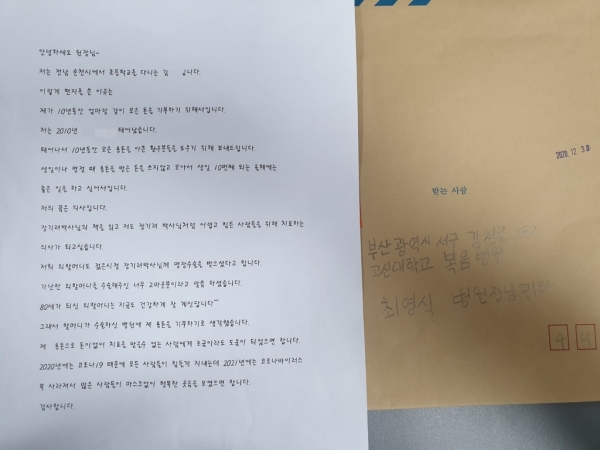 안녕하세요 원장님~
저는 전남 순천시에서 초등학교를 다니는 김 입니다.
이렇게 편지를 쓴 이유는
제가 10년동안 엄마랑 같이 모은 돈을 기부하기 위해서입니다.
저는 2010년 태어났습니다.
태어나서 10년동안 모은 용돈을 아픈 환우분들을 도우기 위해 보내드립니다.
생일이나 명절 때 용돈을 받은 돈을 쓰지않고 모아서 생일 10번째 되는 올해에는
좋은 일을 하고 싶어서입니다.
저의 꿈은 의사입니다.
장기려박사님의 책을 읽고 저도 장기려 박사님처럼 어렵고 힘든 사람들을 위해 치료하는
의사가 되고싶습니다.
저희 외할머니도 젊은시절 장기려박사님께 맹장수술을 받으셨다고 합니다.
가난한 외할머니를 수술해주신 너무 고마운분이라고 말씀 하셨습니다.
80세가 되신 외할머니는 지금도 건강하게 잘 계십니다^^
그래서 할머니가 수술하신 병원에 제 용돈을 기부하기로 생각했습니다.
제 용돈으로 돈이없어 치료를 받을수 없는 사람에게 조금이라도 도움이 되었으면 합니다.
2020년에는 코로나19 때문에 모든 사람들이 힘들게 지내는데 2021년에는 코로나바이러스
로 사라져서 많은 사람들이 마스크없이 행복한 웃음을 보였으면 합니다.
감사합니다.
2020. 12. 3
받는 사람
부산광역시 서구
고신대학교 복음병원
최영식 병원장님